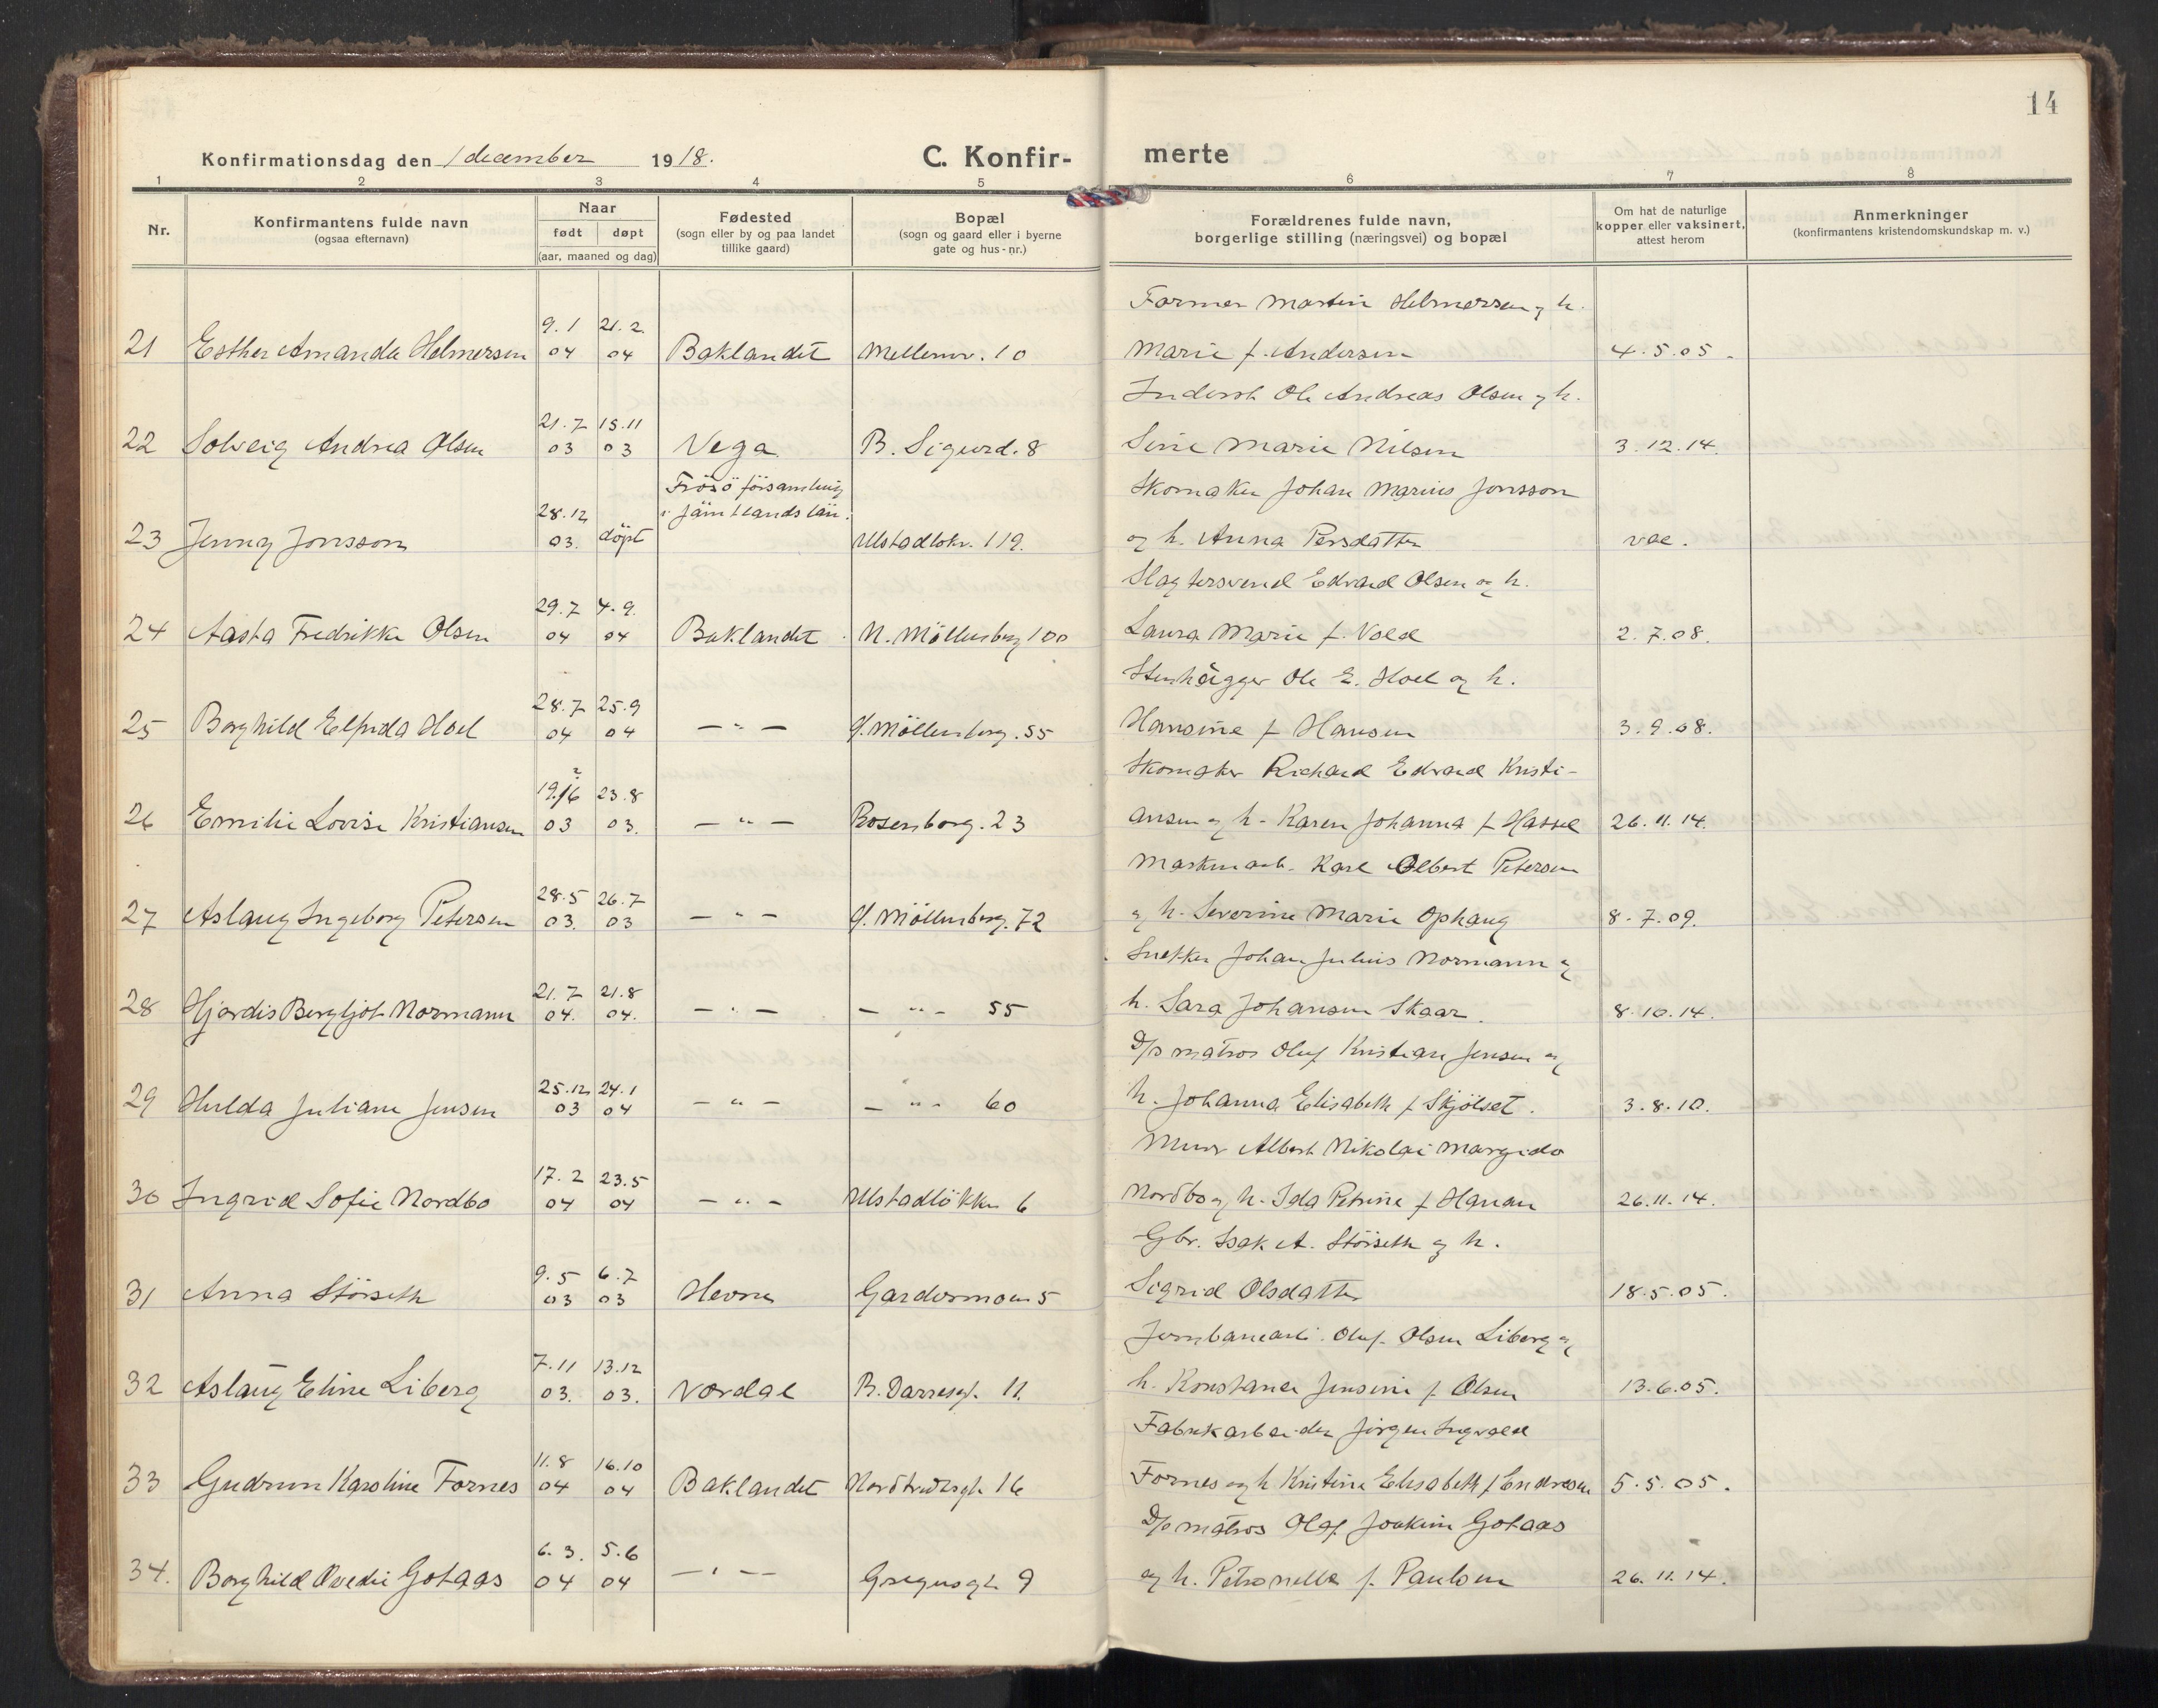 14
Konfirmationsdag den 1 december 1918.
C. Konfirmerte
1 2 3 4 5 6 7 8
Nr.
Konfirmantens fulde navn
(ogsaa efternavn)
Naar
født døpt
(aar, maaned og dag)
Fødested
(sogn eller by og paa landet
tillike gaard)
Bopæl
(sogn og gaard eller i byerne
gate og hus-nr.)
Forældrenes fulde navn,
borgerlige stilling (næringsvei) og bopæl
Om hat de naturlige
kopper eller vaksinert,
attest herom
Anmerkninger
(konfirmantens kristendomskundskap m. v.)
Former Martin Helmersen og h.
9.1 21.2.
21 Esther Amanda Helmersen 04 04 Baklandet Mellemv. 10 Marie f. Andersen 4.5.05.
Ole Andreas Olsen og h.
21.7 15.11
22 Solveig Andrea Olsen 03 03 Vega B. Sigurd. 8 Sine Marie Nilsen 3.12.14.
Frösö församling Skomaker Johan Marius Jonsson
28.12 i Jämtlands län.
23 Jenny Jonsson 03. döpt Ulstadløkv. 119. og h. Anna Persdatter vac.
Slagtersvend Edvard Olsen og h.
29.7 4.9.
24 Aasta Fredrikke Olsen 04 04 Baklandet N. Möllenberg 100 Laura Marie f. Vold 2.7.08.
Stenhügger Ole E. Hoel og h.
28.7 25.9
25 Borghild Elfrida Hoel 04 04 — " — Ø. Möllenberg. 55 Hansine f Hansen 3.9.08.
Skomaker Richard Edvard Kristi-
19.16 23.8
26 Emilie Lovise Kristiansen 03 03. — " — Rosenborg. 23 ansen og h. Karen Johanna f Hassel 26.11.14.
Maskinarb. Karl Albert Petersen
28.5 26.7
27 Aslaug Ingeborg Petersen 03. 03 — " — Ø. Möllenberg. 72 og h. Severine Marie Ophaug 8.7.09.
Snekker Johan Julius Normann og
21.7 21.8
28 Hjørdis Bergljot Normann 04. 04. — " — — " — 55 h. Sara Johansen Skaar. 8.10.14.
D/s matros Oluf Kristian Jensen og
25.12 24.1
29 Hulda Juliane Jensen 03 04 — " — — " — 60 h. Johanna Elisabeth f Skjölset. 3.8.10.
Murer Albert Nikolai Margido
17.2 23.5
30 Ingrid Sofie Nordbo 04 04 — " — Ulstadløkken 6 Nordbo og h. Ida Petrine f Hanan 26.11.14.
Gbr. Isak A. Störseth og h.
9.5 6.7
31 Anna Störseth 03 03 Hevne Gardermoen 5 Sigrid Olsdatter 18.5.05.
Jernbanearb. Oluf Olsen Liberg og
7.11 13.12
32 Aslaug Eline Liberg 03. 03. Værdal R. Darresgt. 11. h. Konstance Jensine f. Olsen 13.6.05.
Fabrikarbeider Jörgen Ingvald
11.8 16.10
33 Gudrun Karoline Fornes 04 04 Baklandet Nordtvedtsgt. 16 Fornes og h Kristine Elisabeth f Endresen 5.5.05.
D/s matros Olaf Joakim Gotaas
6.3. 5.6
34. Borghild Ovedie Gotaas 04 04 — " — Gregusgt 9 og h. Petronella f. Paulsen 26.11.14.